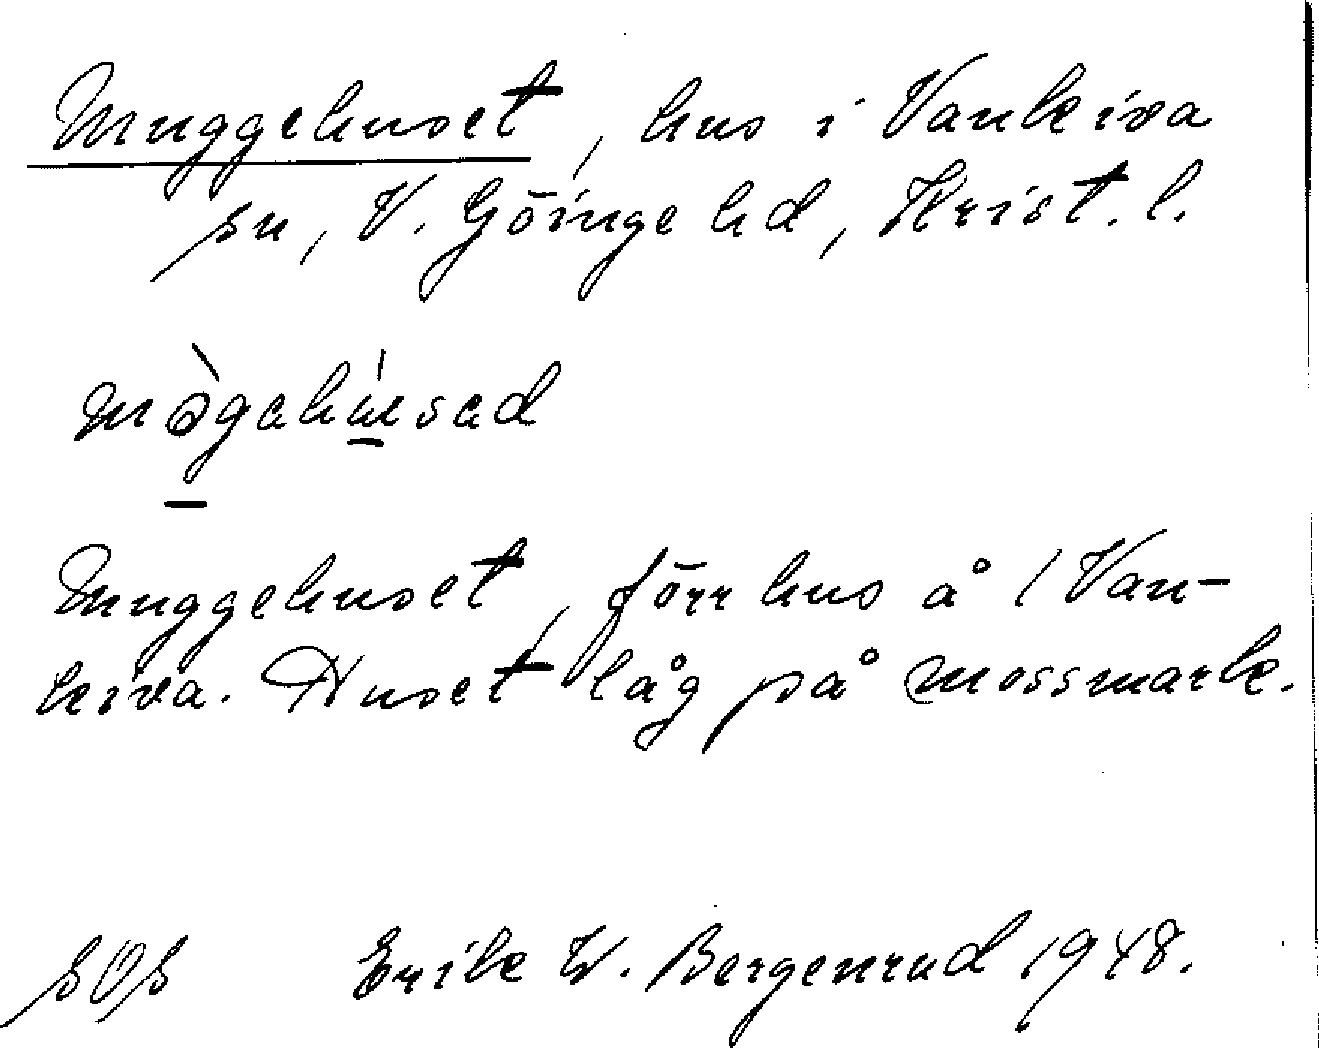 Muggehuset, hus i Vankiva
sn, V. Göinge hd, Krist. l.
Muggehuset, förr hus å 1 Van-
kiva. Huset låg på mossmark.
SOS Erik W. Bergenrud 1948.